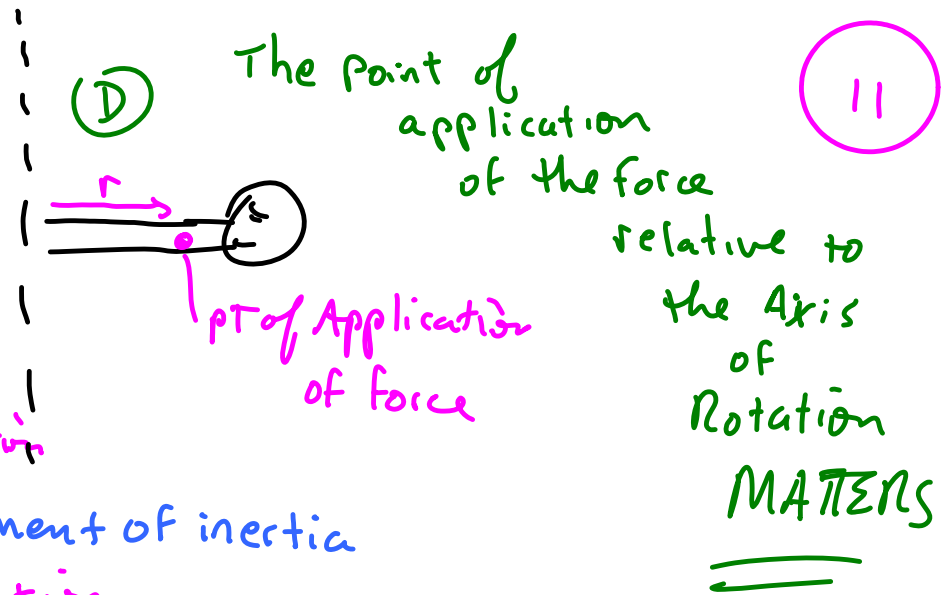 D
The point of
application
of the force
relative to
the Axis
of
Rotation
MATTERS
11
r
pT of Application
of force
ment of inertia